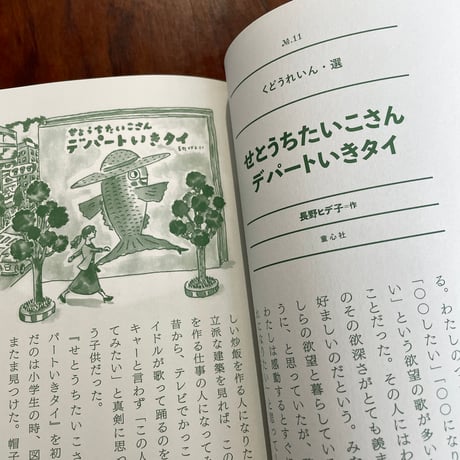 №.11
くどうれいん・選
せとうちたいこさん
デパートいきタイ
長野ヒデ子=作
童心社
る。わたしの
「〇〇したい」「〇〇にな
い」という欲望の歌が多い
ことだった。その人にはわ
のその欲深さがとても羨ま
好ましいのだという。み
しらの欲望と暮らしている
うに、と思っていたが、
わたしは感動するとすぐ
せとうちたいこさん
デパートいきタイ
しい炒飯を作る人になりた
立派な建築を見れば、この
を作る仕事の人になってみ
昔から、テレビでかっこ
イドルが歌って踊るのを
キャーと言わず「この人
てみたい」と真剣に思
う子供だった。
『せとうちたいこさ
パートいきタイ』を初
だのは小学生の時、図
またま見つけた。帽子